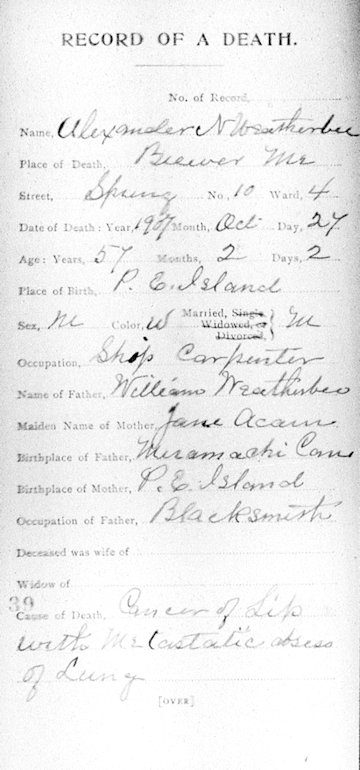 RECORD OF A DEATH.
No. of Record,
Name, Alexander N Weatherbee
Place of Death, Brewer Me
Street, Spring No. 10 Ward, 4
Date of Death: Year, 1907 Month, Oct Day, 27
Age: Years, 57 Months, 2 Days, 2
Place of Birth, P. E. Island
Sex, M Color, W Married, Single, Widowed, or Divorced, } M
Occupation, Ship Carpenter
Name of Father, William Weatherbee
Maiden Name of Mother, Jane
Birthplace of Father, Miramachi Can
Birthplace of Mother, P. E. Island
Occupation of Father, Blacksmith
Deceased was wife of
Widow of
39
Cause of Death, Cancer of Lip
with Metastatic absess
of Lung
[OVER]